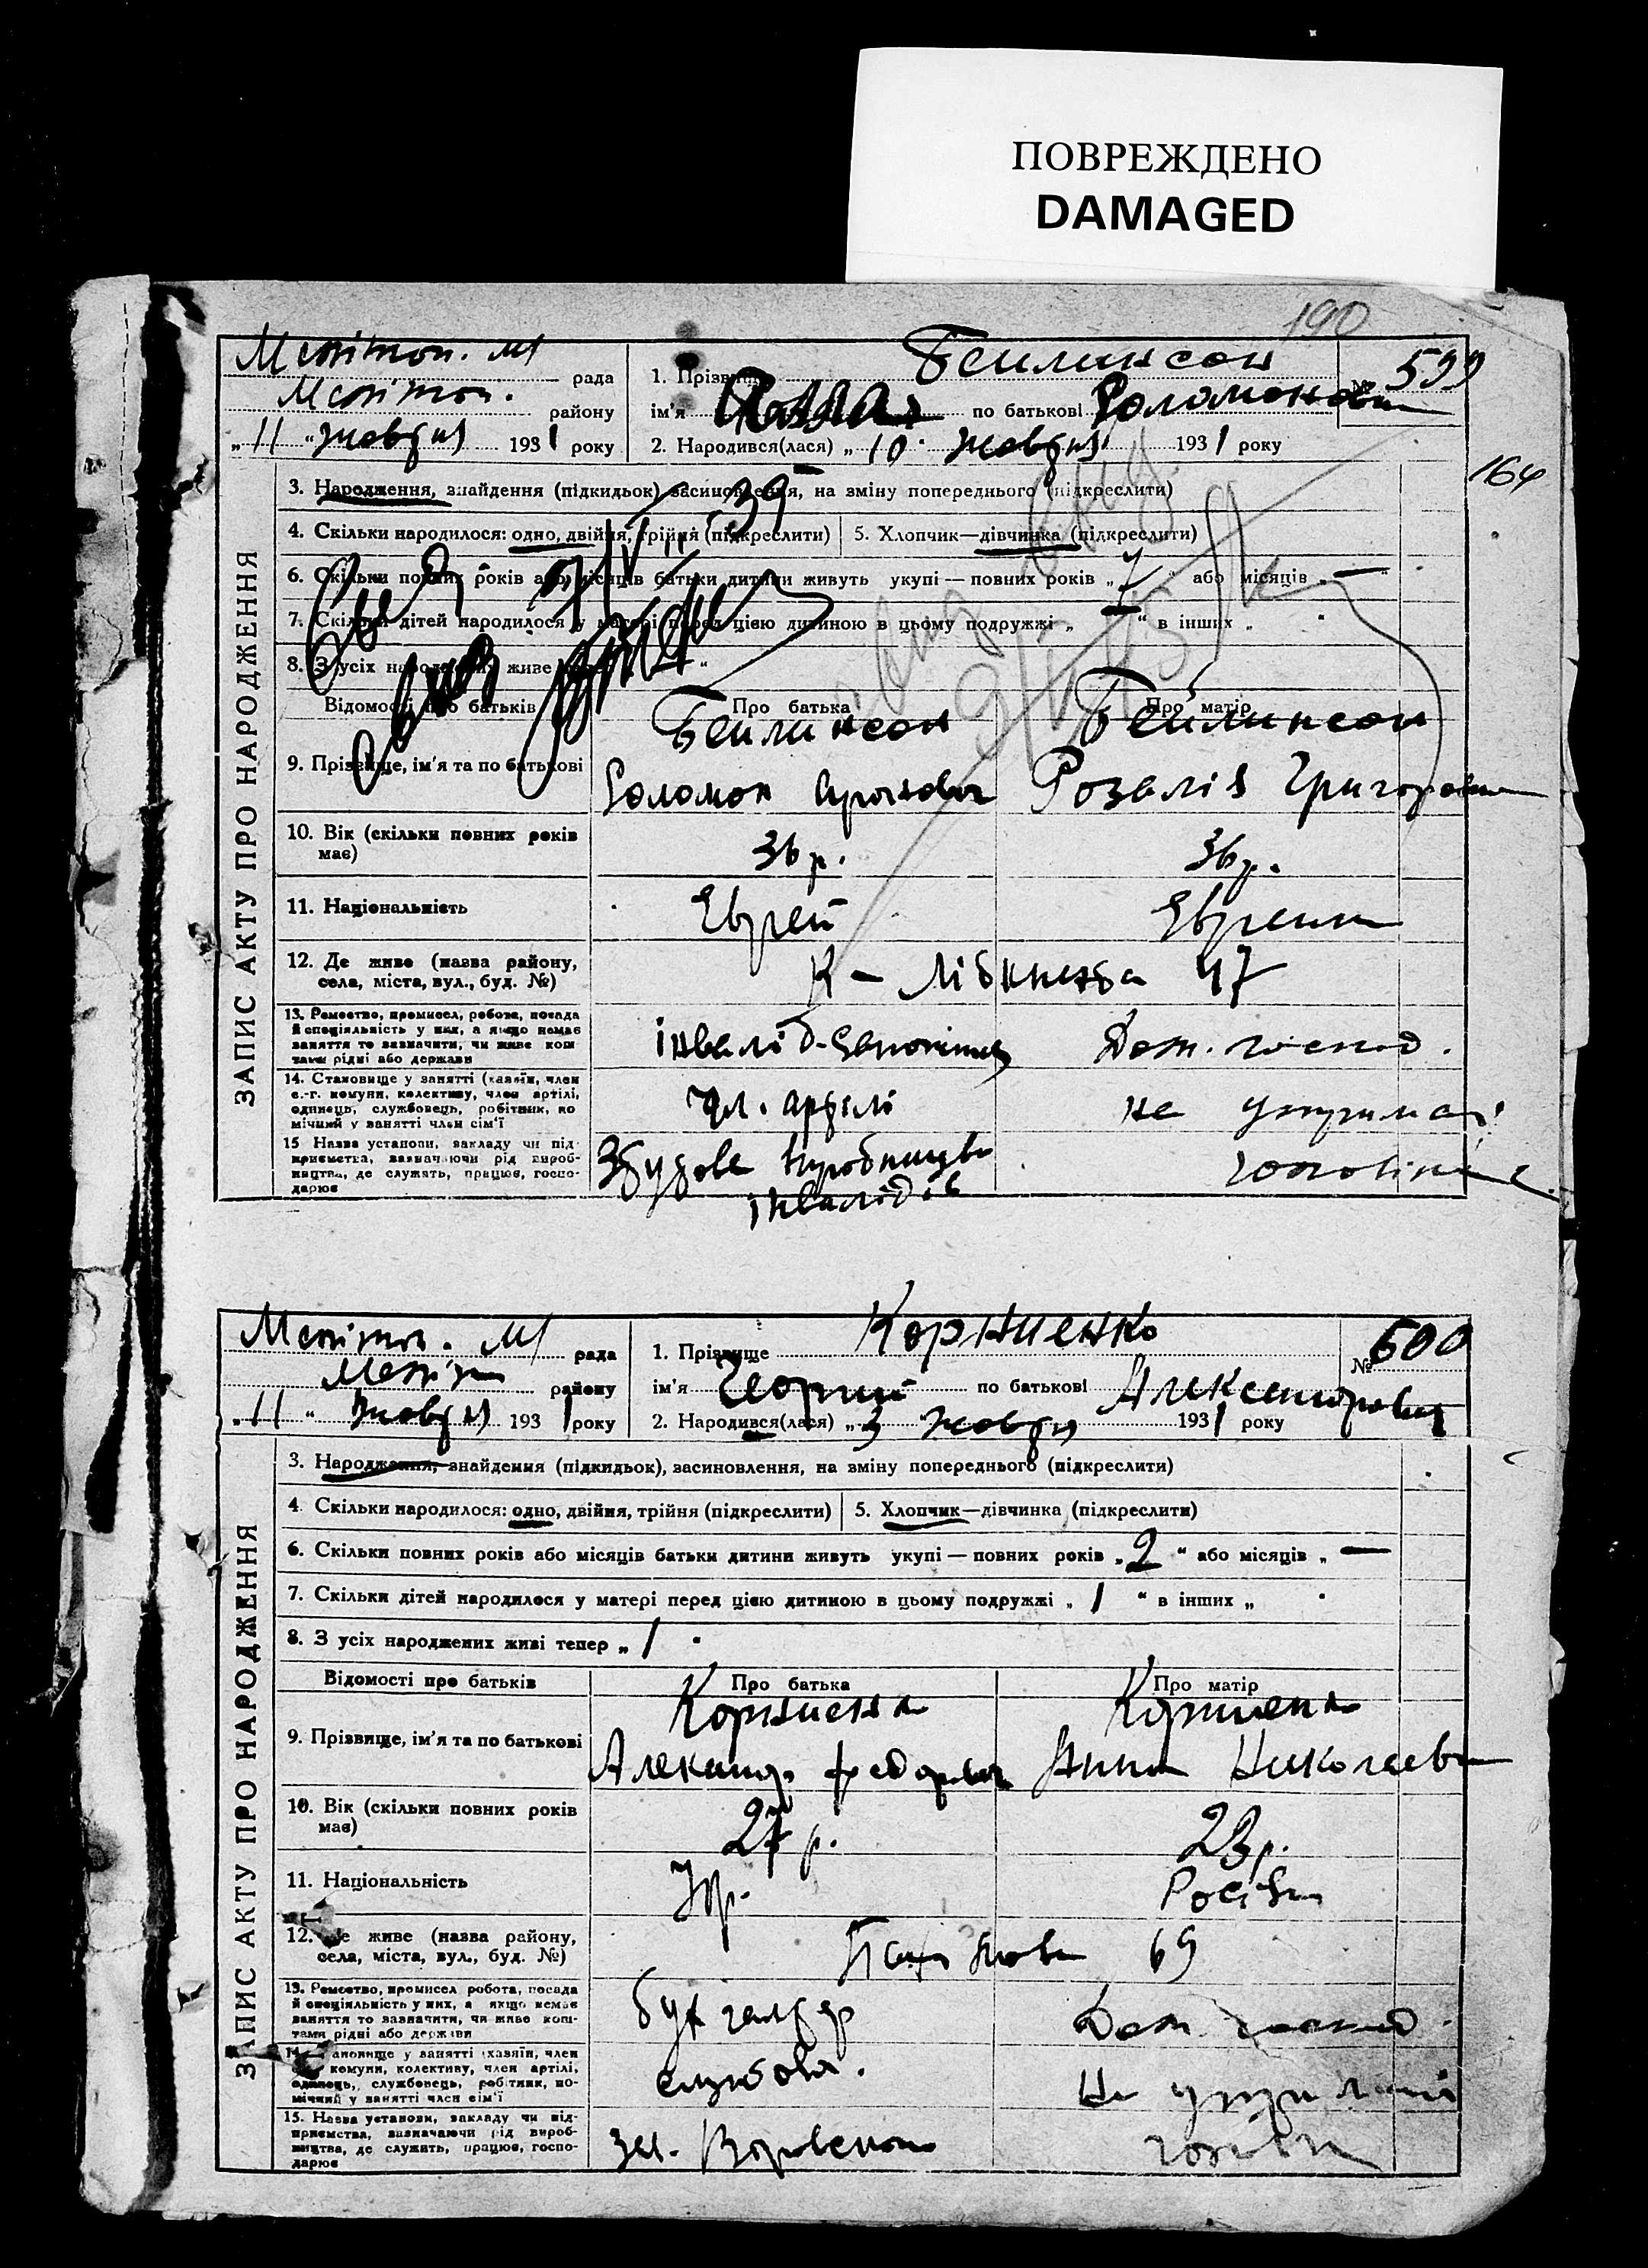 ПОВРЕЖДЕНО
DAMAGED
190
Мелітоп. М/ рада
Мелітоп. району
„11“ жовтня 1931 року
1. Прізвище Бейлинсон
№ 599
ім'я по батькові Соломоновн
2. Народився(лася) „10“ жовтня 1931 року
164
ЗАПИС АКТУ ПРО НАРОДЖЕННЯ
3. Народження, знайдення (підкидьок) засиновлення, на зміну попереднього (підкреслити)
4. Скільки народилося: одно, двійня, трійня (підкреслити) 5. Хлопчик—дівчинка (підкреслити)
6. Скільки повних років або місяців батьки дитини живуть укупі — повних років „7“ або місяців „—“
7. Скільки дітей народилося у матері перед цією дитиною в цьому подружжі „—“ в інших „
8. З усіх народжених живі
Відомості про батьків Про батька Про матір
9. Прізвище, ім'я та по батькові
Бейлинсон
Соломон
Бейлинсон
Розалія Григоровн
10. Вік (скільки повних років має) 36 р. 36 р.
11. Національність Еврей Еврейка
12. Де живе (назва району, села, міста, вул., буд. №) К — Лібкнехта 47
13. Ремество, промисел, робота, посада й спеціяльність у них, а якщо немає заняття то зазначити, чи живе коштами рідні або держави
інвалід Дом. господ.
14. Становище у занятті (хазяїн, член с.-г. комуни, колективу, член артілі, одинець, службовець, робітник, помічний у занятті член сім'ї
чл. артілі на утриман.
15 Назва установи, закладу чи підприємства, зазначаючи рід виробництва, де служить, працює, господарює
інвалідів
Мелітоп. М/ рада
Меліт району
„11“ жовтня 1931 року
1. Прізвище Корниенко
№ 600
ім'я Георгий по батькові Александрович
2. Народився(лася) „3“ жовтня 1931 року
ЗАПИС АКТУ ПРО НАРОДЖЕННЯ
3. Народження, знайдення (підкидьок), засиновлення, на зміну попереднього (підкреслити)
4. Скільки народилося: одно, двійня, трійня (підкреслити) 5. Хлопчик—дівчинка (підкреслити)
6. Скільки повних років або місяців батьки дитини живуть укупі — повних років „2“ або місяців „—
7. Скільки дітей народилося у матері перед цією дитиною в цьому подружжі „1“ в інших „
8. З усіх народжених живі тепер „1
Відомості про батьків Про батька Про матір
9. Прізвище, ім'я та по батькові
Корниенко
Александр Федорович
Корниенко
Анна Николаевн
10. Вік (скільки повних років має) 27 р. 23 р.
11. Національність Укр. Росіян
12. Де живе (назва району, села, міста, вул., буд. №) 69
13. Ремество, промисел робота, посада й спеціяльність у них, а якщо немає заняття то зазначити, чи живе коштами рідні або держави
бухгалтер Дом. господ.
14. Становище у занятті (хазяїн, член комуни, колективу, член артілі, одинець, службовець, робітник, помічний у занятті член сім'ї
службов. На утриманні
15. Назва установи, закладу чи підприємства, зазначаючи рід виробництва, де служить, працює, господарює